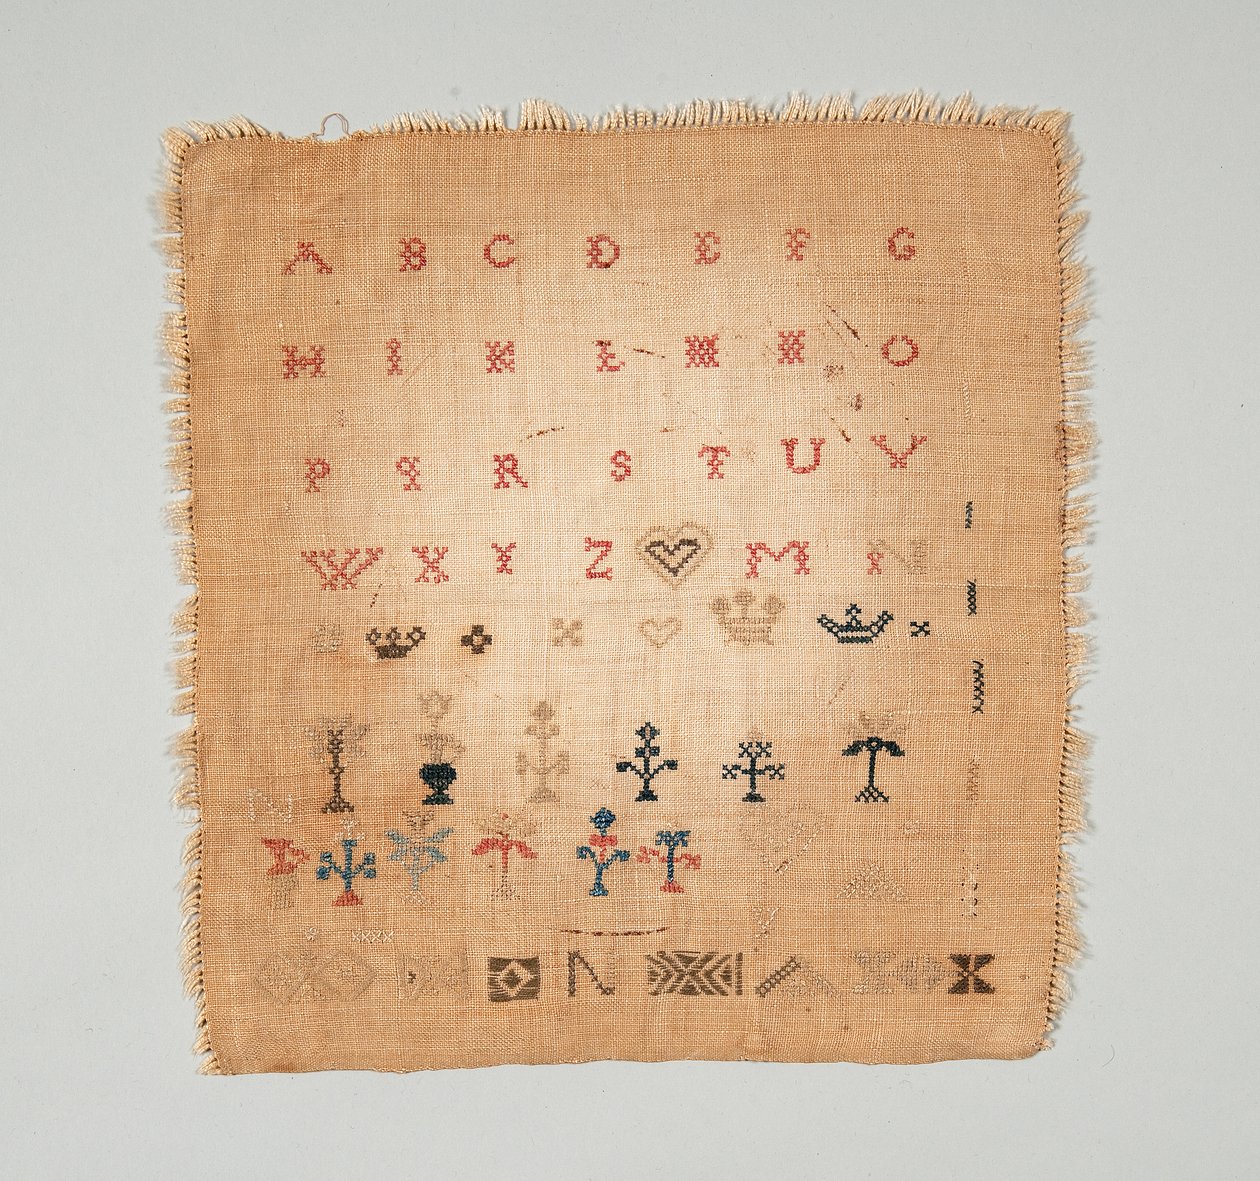 A B C D E F G
H I K L M N O
P q R S T U V
W X Y Z M N
N
N